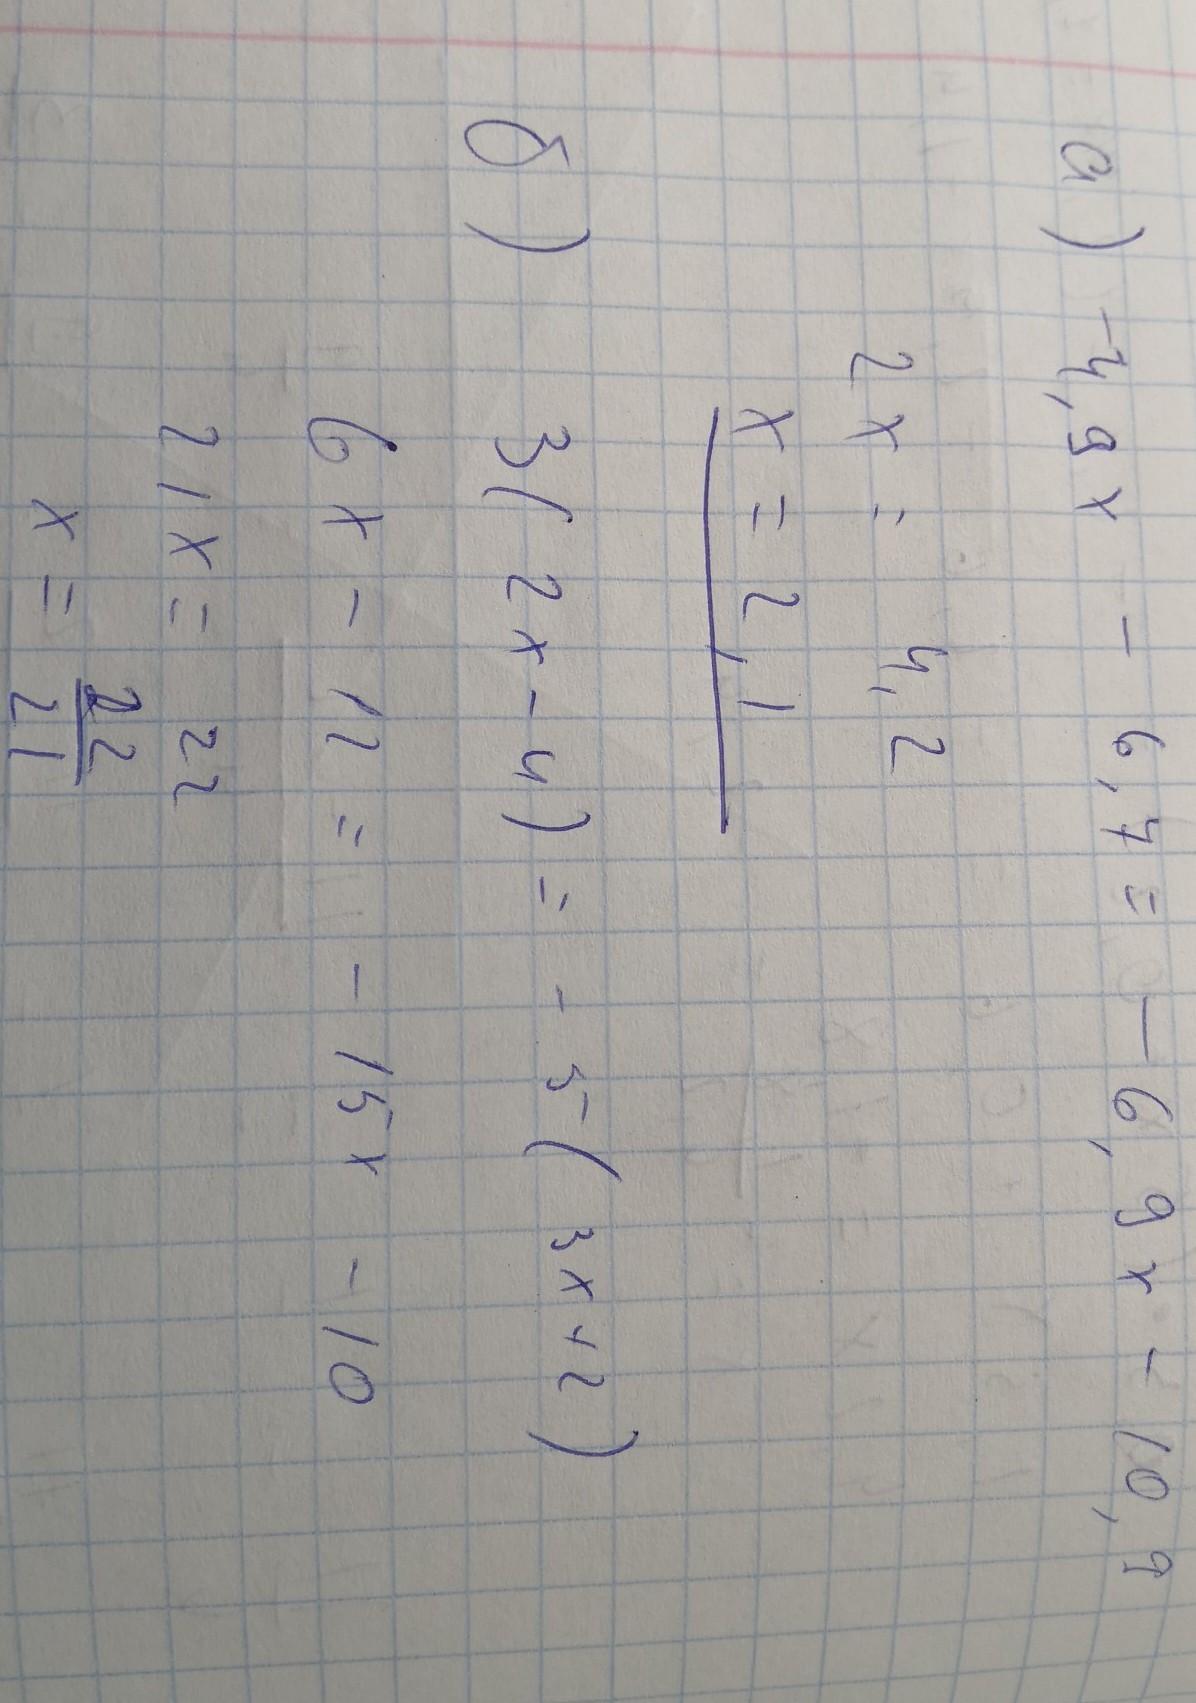 а) -4,9x - 6,7 = -6,9x - 10,9
2x = 4,2
x = 2,1
б) 3(2x-4) = -5(3x+2)
6x - 12 = -15x - 10
21x = 22
x = 22/21